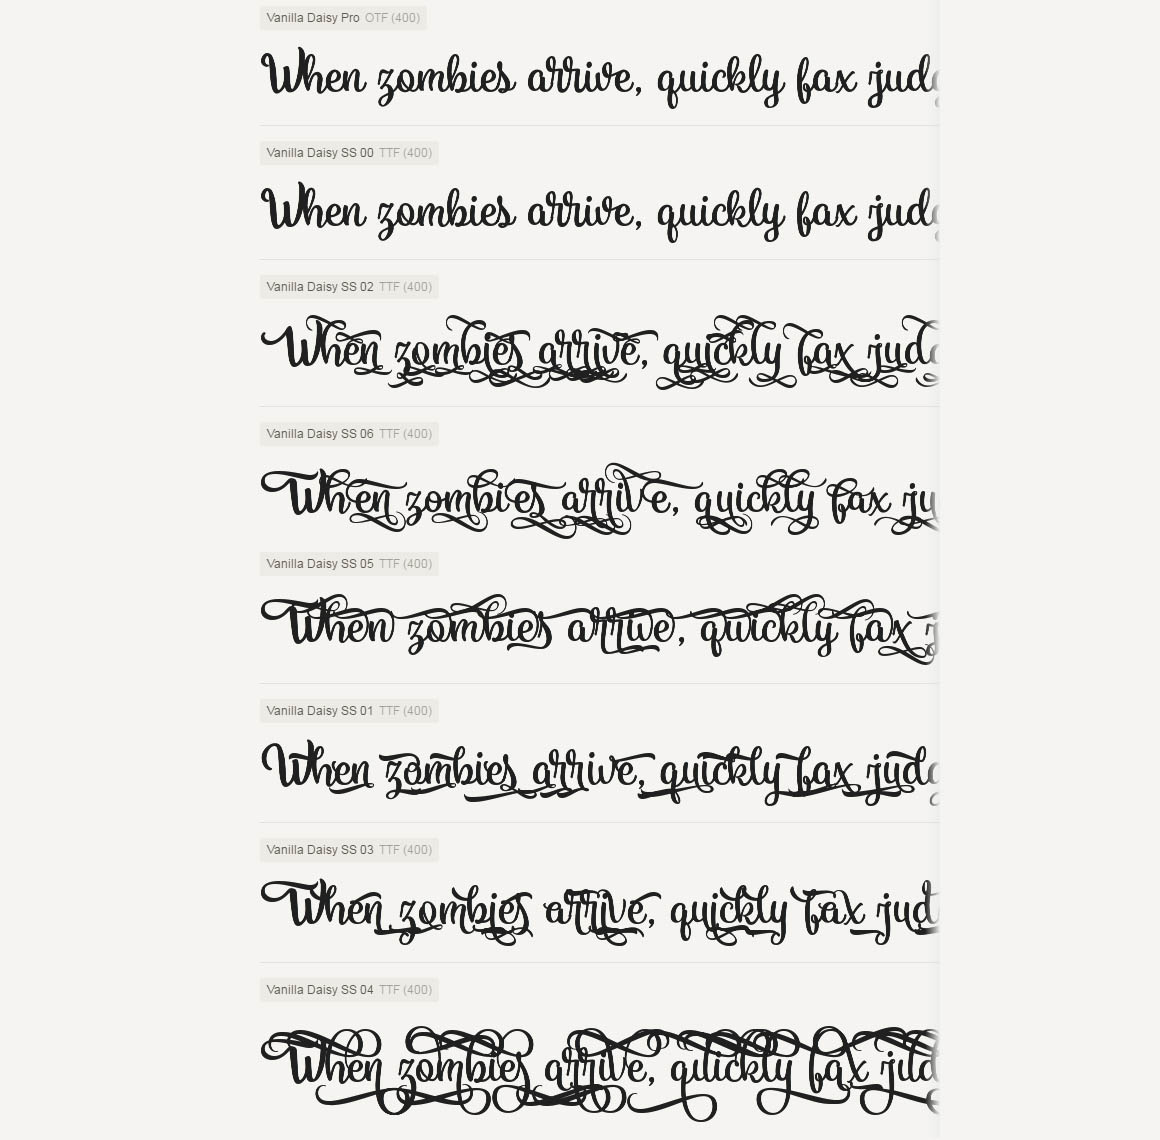 Vanilla Daisy Pro OTF (400)
When zombies arrive, quickly fax judg
Vanilla Daisy SS 00 TTF (400)
When zombies arrive, quickly fax judg
Vanilla Daisy SS 02 TTF (400)
When zombies arrive, quickly fax judg
Vanilla Daisy SS 06 TTF (400)
When zombies arrive, quickly fax ju
Vanilla Daisy SS 05 TTF (400)
When zombies arrive, quickly fax j
Vanilla Daisy SS 01 TTF (400)
When zombies arrive, quickly fax judg
Vanilla Daisy SS 03 TTF (400)
When zombies arrive, quickly fax jud
Vanilla Daisy SS 04 TTF (400)
When zombies arrive, quickly fax jud